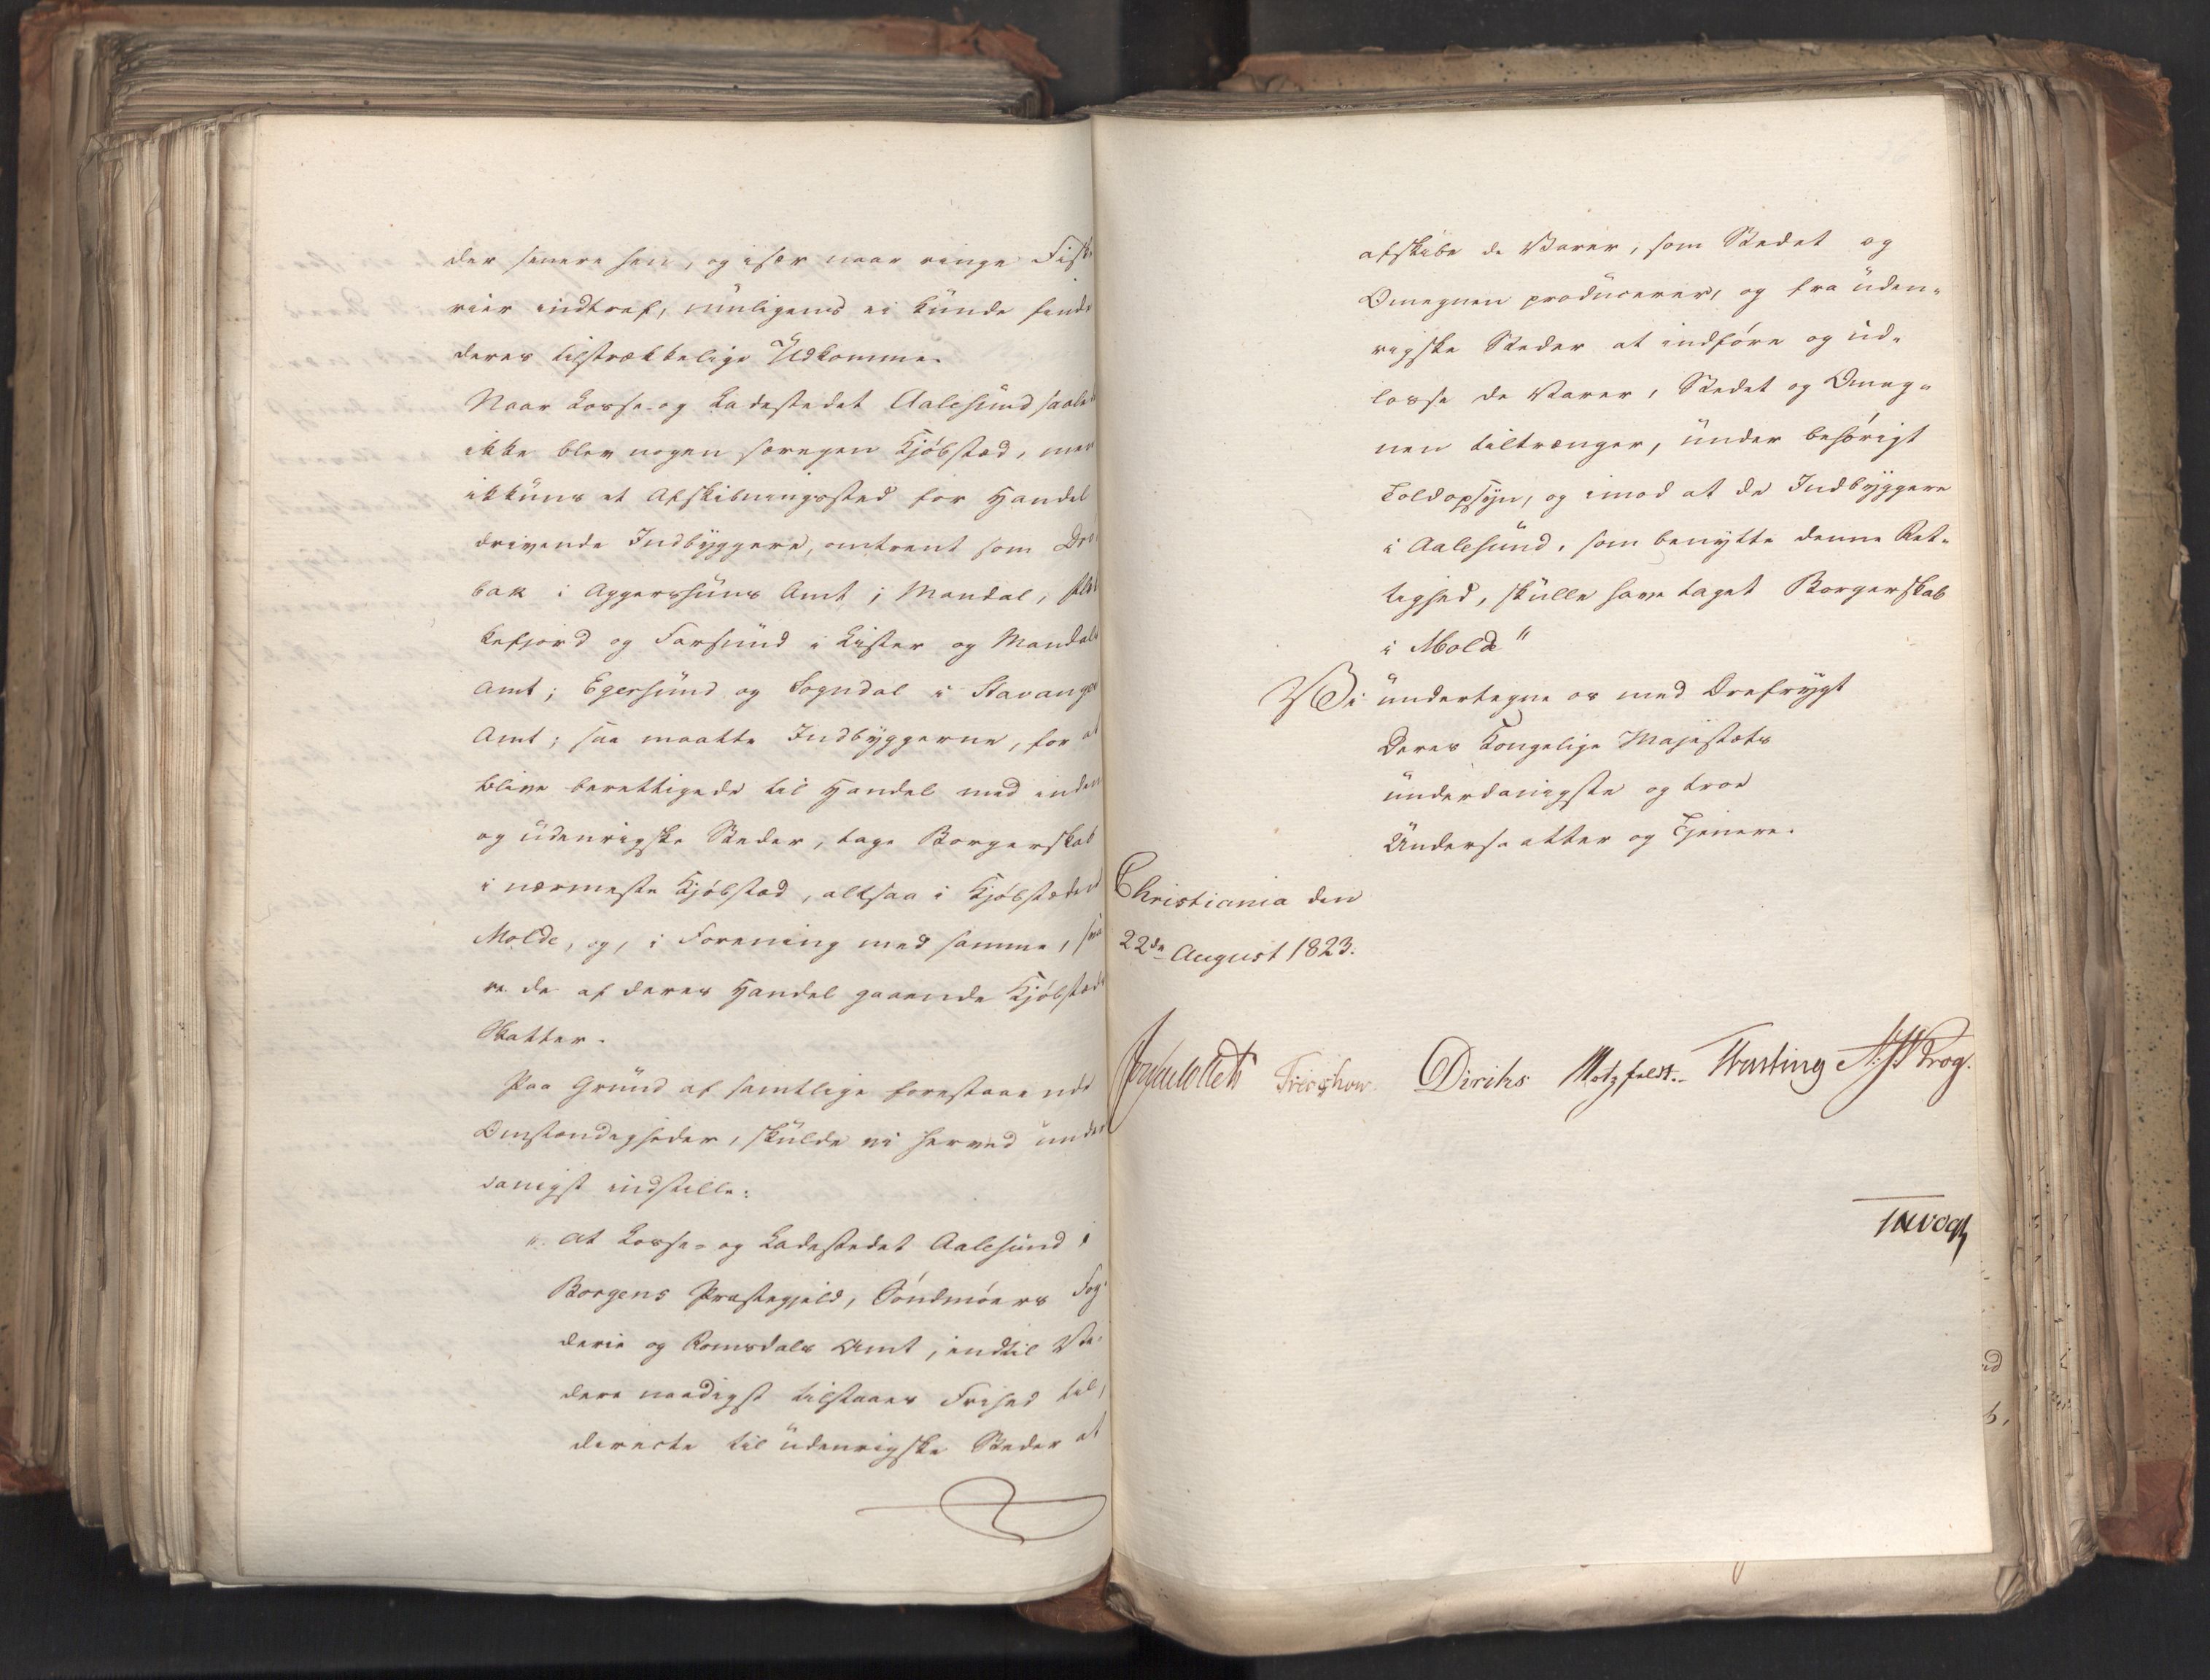 der senere hen, og især naar ringe Fiske
rier indtraf, muligens ei kunde finde
deres tilstrækkelige Udkomme.
Naar Losse- og Ladestedet Aalesund saaledes
ikke blev nogen særegen Kjøbstad, men
ikkuns et Afskibningssted for Handel
drivende Indbyggere, omtrent som Drø
bak i Aggershuus Amt; Mandal, Flek
kefjord og Farsund i Lister og Mandals
Amt; Egersund og Sogndal i Stavanger
Amt; saa maatte Indbyggerne, for at
blive berettigede til Handel med inden
og udenrigske Steder, tage Borgerskab
i nærmeste Kjøbstad, altsaa i Kjøbstaden
Molde, og, i Forening med samme, sva
re de af deres Handel gaaende Kjøbstads
Skatter.
Paa Grund af samtlige forestaaende
Omstændigheder, skulde vi herved under
danigst indstille:
"At Losse- og Ladestedet Aalesund i
Borgens Præstegjeld, Søndmøers Fog
derie og Romsdals Amt, indtil Vi
dere naadigst tilstaaes Frihed til,
directe til udenrigske Steder at
afskibe de Varer, som Stedet og
Omegnen producerer, og fra uden-
rigske Steder at indføre og ud-
losse de Varer, Stedet og Omeg-
nen tiltrænger, under behørigt
Toldopsyn, og imod at de Indbyggere
i Aalesund, som benytte denne Ret-
tighed, skulle have taget Borgerskab
i Molde"
Vi undertegne os med Ærefrygt
Deres Kongelige Majestæts
underdanigste og troe
Undersaatter og Tjenere.
Christiania den
22de August 1823.
Treschow. Diriks Motzfeldt. Fasting A. S. Krog.
Vogt